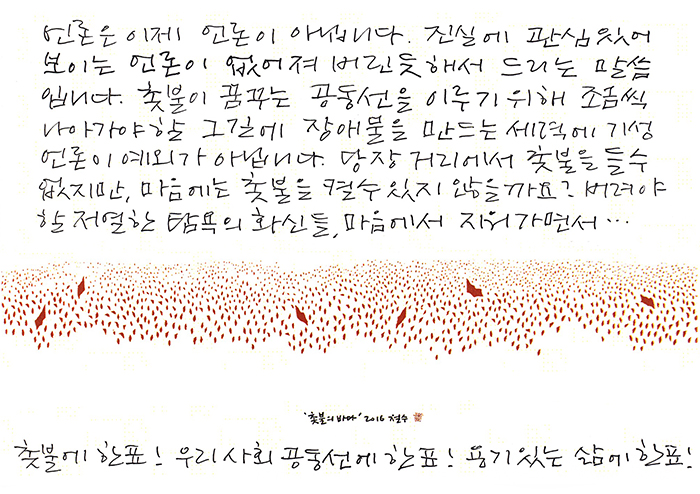 언론은 이제 언론이 아닙니다. 진실에 관심있어
보이는 언론이 없어져 버린듯해서 드리는 말씀
입니다. 촛불이 꿈꾸는 공동선을 이루기 위해 조금씩
나아가야할 그길에 장애물을 만드는 세력에 기성
언론이 예외가 아닙니다. 당장 거리에서 촛불을 들수
없지만, 마음에는 촛불을 켤수 있지 않을까요? 버려야
할 저열한 탐욕의 화신들, 마음에서 지워가면서…
'촛불의 바다' 2016 철수
촛불에 한표! 우리사회 공동선에 한표! 용기있는 삶에 한표!